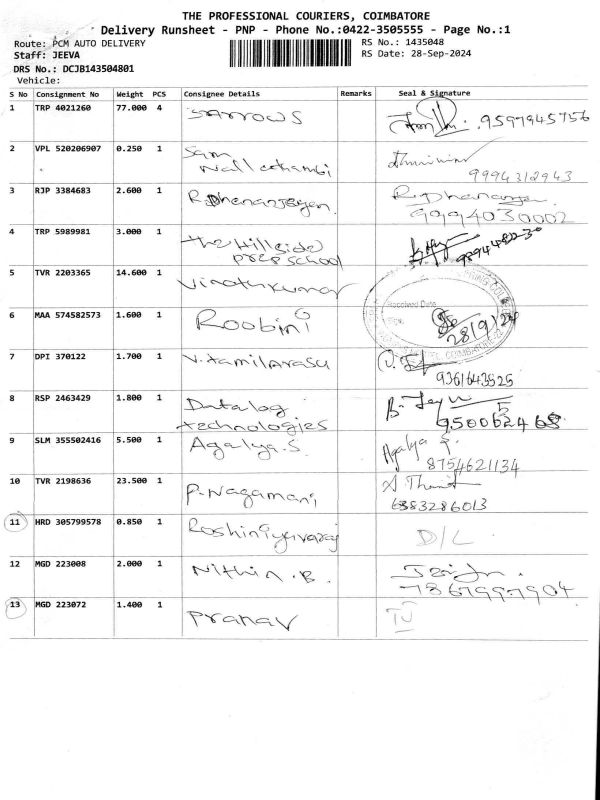 THE PROFESSIONAL COURIERS, COIMBATORE
Delivery Runsheet - PNP - Phone No.:0422-3505555 - Page No.:1
Route: PCM AUTO DELIVERY
RS No.: 1435048
Staff: JEEVA
RS Date: 28-Sep-2024
DRS No.: DCJB143504801
Vehicle:
S No Consignment No Weight PCS Consignee Details Remarks Seal & Signature
1 TRP 4021260 77.000 4 SARROWS 9597945756
2 VPL 520206907 0.250 1 Sam
Nallathambi 9994312943
3 RJP 3384683 2.600 1 R.Dhananjeyan R.Dhananjeyan
9994030002
4 TRP 5989981 3.000 1 The Hillside
prep school
5 TVR 2203365 14.600 1 Vinothkumar
Received Date
6 MAA 574582573 1.600 1 Roobini 28/9/24
7 DPI 370122 1.700 1 V.Tamilarasu
9361643525
8 RSP 2463429 1.800 1 Datalog
technologies 950062468
9 SLM 355502416 5.500 1 Agalya.S Agalya S.
8754621134
10 TVR 2198636 23.500 1 P.Nagamani
6383286013
11 HRD 305799578 0.850 1 Roshiniyuvaraj D/L
12 MGD 223008 2.000 1 Nithin.B
7867997904
13 MGD 223072 1.400 1 Pranav